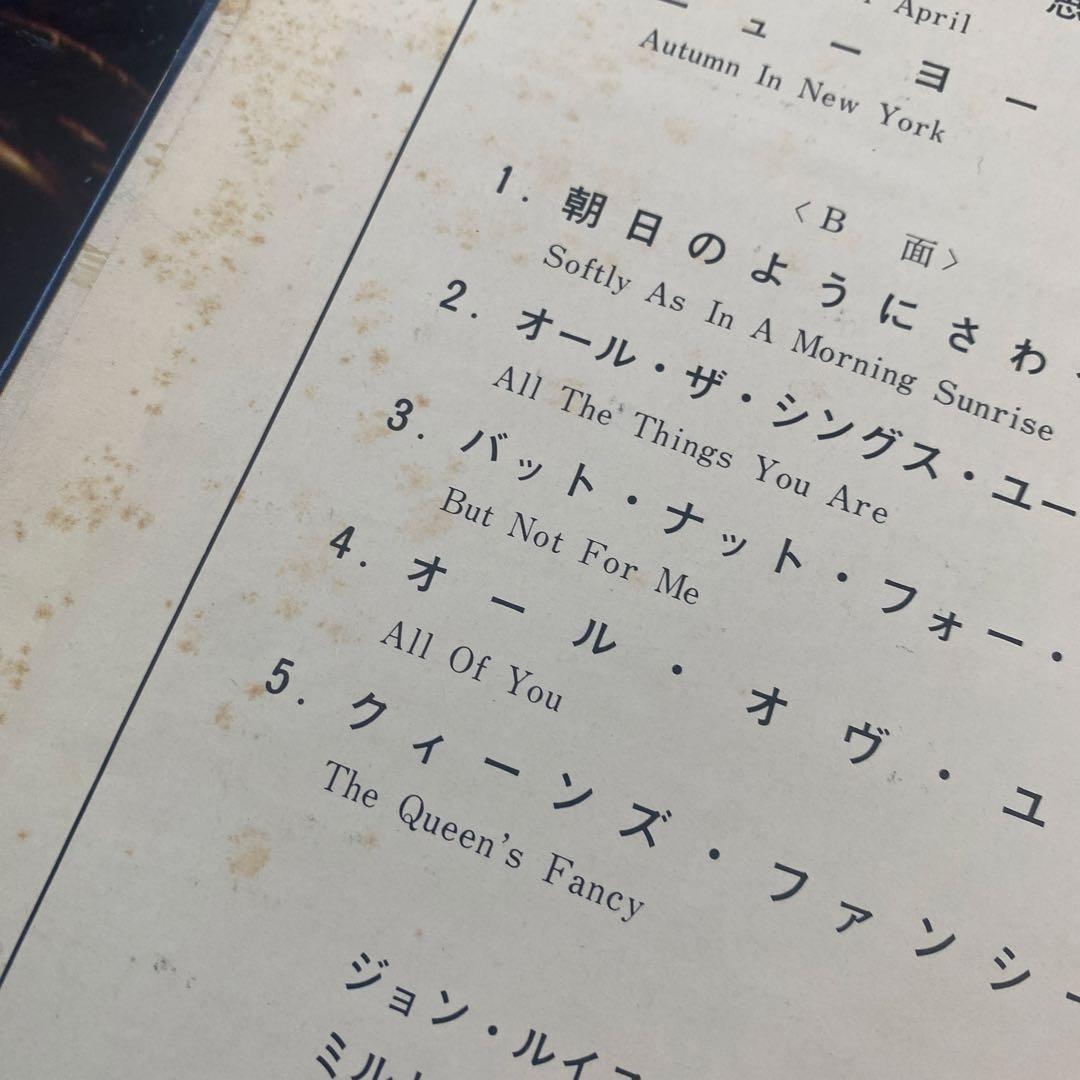 April
ューヨー
Autumn In New York
〈B 面〉
1. 朝日のようにさわ
Softly As In A Morning Sunrise
2. オール・ザ・シングス・ユー
All The Things You Are
3. バット・ナット・フォー・
But Not For Me
4. オール・オヴ・ユ
All Of You
5. クィーンズ・ファンシー
The Queen's Fancy
ジョン・ルイス
ミル